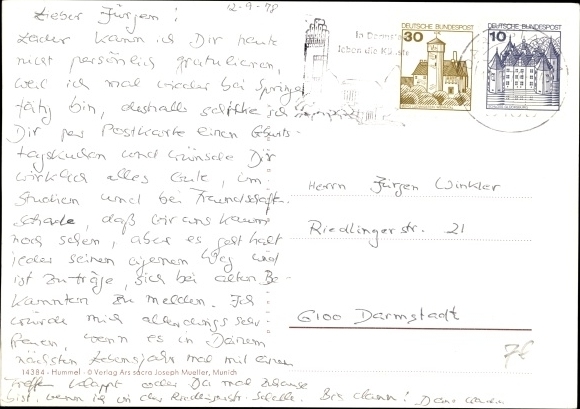 12-9-78
Lieber Jürgen!
Leider kann ich Dir heute
nicht persönlich gratulieren,
weil ich mal wieder bei Spring
tätig bin, deshalb schicke ich
Dir per Postkarte einen Geburts-
tagskuchen und wünsche Dir
wirklich alles Gute, im
Studium und bei Freundschaften.
Schade, daß wir uns kaum
noch sehen, aber es geht halt
jeder seinen eigenen Weg und
ist zu träge, sich bei alten Be-
kannten zu melden. Ich
würde mich allerdings sehr
freuen, wenn es in Deinem
nächsten Lebensjahr mal mit einem
Treffen klappt oder Du mal zuhause
bist, wenn ich in der Riedlingerstr. schelle. Bis dann! Deine
14384 - Hummel - © Verlag Ars sacra Joseph Mueller, Munich
In Darmstadt
leben die Künste
DEUTSCHE BUNDESPOST
30
DEUTSCHE BUNDESPOST
10
Herrn Jürgen Winkler
Riedlingerstr. 21
6100 Darmstadt
7€